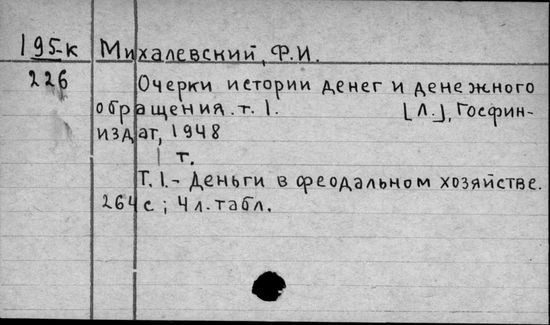 195-к Михалевский, Ф.И.
226 Очерки истории денег и денежного
обращения. т. 1. [Л.], Госфин-
издат, 1948
1 т.
Т. 1.- Деньги в феодальном хозяйстве.
264 с; 4 л. табл.